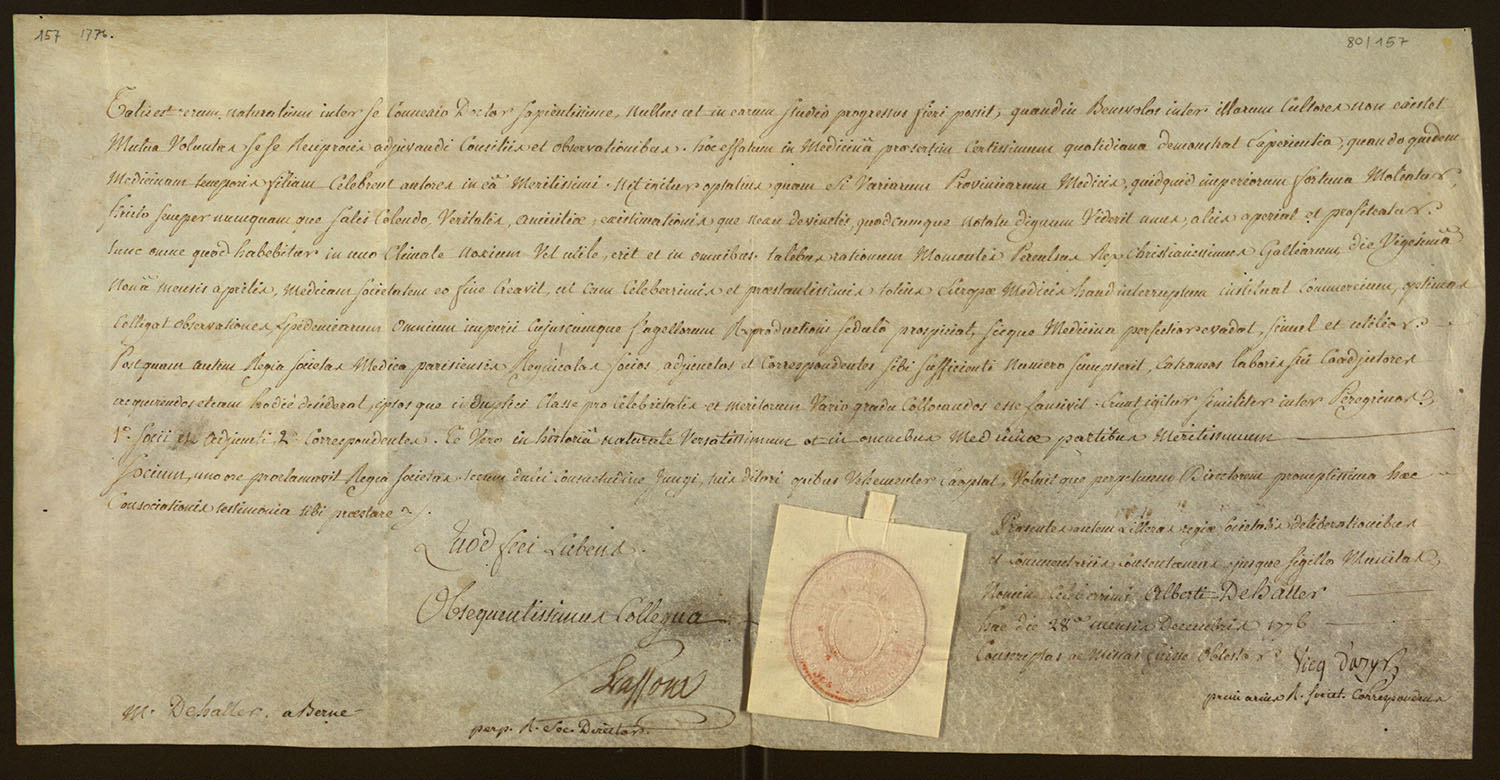 157 1776.
80/157
Talis est rerum naturalium inter se Connexio Doctor sapientissime, Nullus ut in earum studio progressus fieri possit, quandiu Benevolos inter illarum Cultores non existet
Mutua Voluntas se se Reciprocis adjuvandi Consiliis et observationibus. hoc effatum in Medicinâ præsertim Certissimum quotidiana demonstrat Experientia, quandoquidem
Medicinam temporis filiam Celebrent autores in eâ Meritissimi. Nil igitur optatius quam si Variarum Provinciarum Medicis, quidquid imperiorum fortuna Moliatur,
stricto semper numquam que Veritatis, amicitiæ, existimationis que nexu devinctis, quodcumque notatu dignum Viderit unus, aliis aperiat et profiteatur.
tunc omne quod habebitur in uno Climate noxium Vel utile, erit et in omnibus. talibus rationum Momentis Perculsus Rex Christianissimus Galliarum, die Vigesimâ
Nonâ mensis aprilis, Medicam societatem eo fine Creavit, ut cum Celeberrimis et præstantissimis totius Europæ Medicis haud interruptum instituat Commercium, optimas
Colligat observationes Epidemicarum omnium imperii Cujuscumque flagellorum Reproductioni sedulò prospiciat, sicque Medicina perfectior evadat, simul et utilior.
Postquam autem Regia societas Medica parisiensis Regnicolas socios, adjunctos et Correspondentes sibi sufficienti Numero sumpserit, Extraneos Laboris sui Coadjutores
acquirendos etiam hodiè desiderat, ipsos que in Duplici Classe pro Celebritatis et meritorum Vario gradu Collocandos esse sancivit. sunt igitur similiter inter Peregrinos,
1°. socii et adjuncti, 2° Correspondentes. Te Vero in historiâ naturale Versatissimum et in omnibus Medicinæ partibus Meritissimum
socium, uno ore proclamavit Regia societas. tecum dulci Consuetudine Jungi, tuis ditari opibus Vehementer Exoptat, Voluitque perpetuum Directorem promptissima hæc
Consociationis testimonia tibi præstare.
Quod feci Lubens.
Obsequentissimus Collega
Lassone
perp. R. Soc. Director.
M. De haller. a Berne
Præsentes autem Litteras regiæ societatis deliberationibus
et Commentariis Consentaneas, ejusque sigillo Munitas,
Nomini Celeberrimi Alberti De haller
hac die 28ª mensis Decembris 1776
Conscriptas ac Missas fuisse Obtestor.
Vicq d'azyr
primarius R. societ. Correspondens